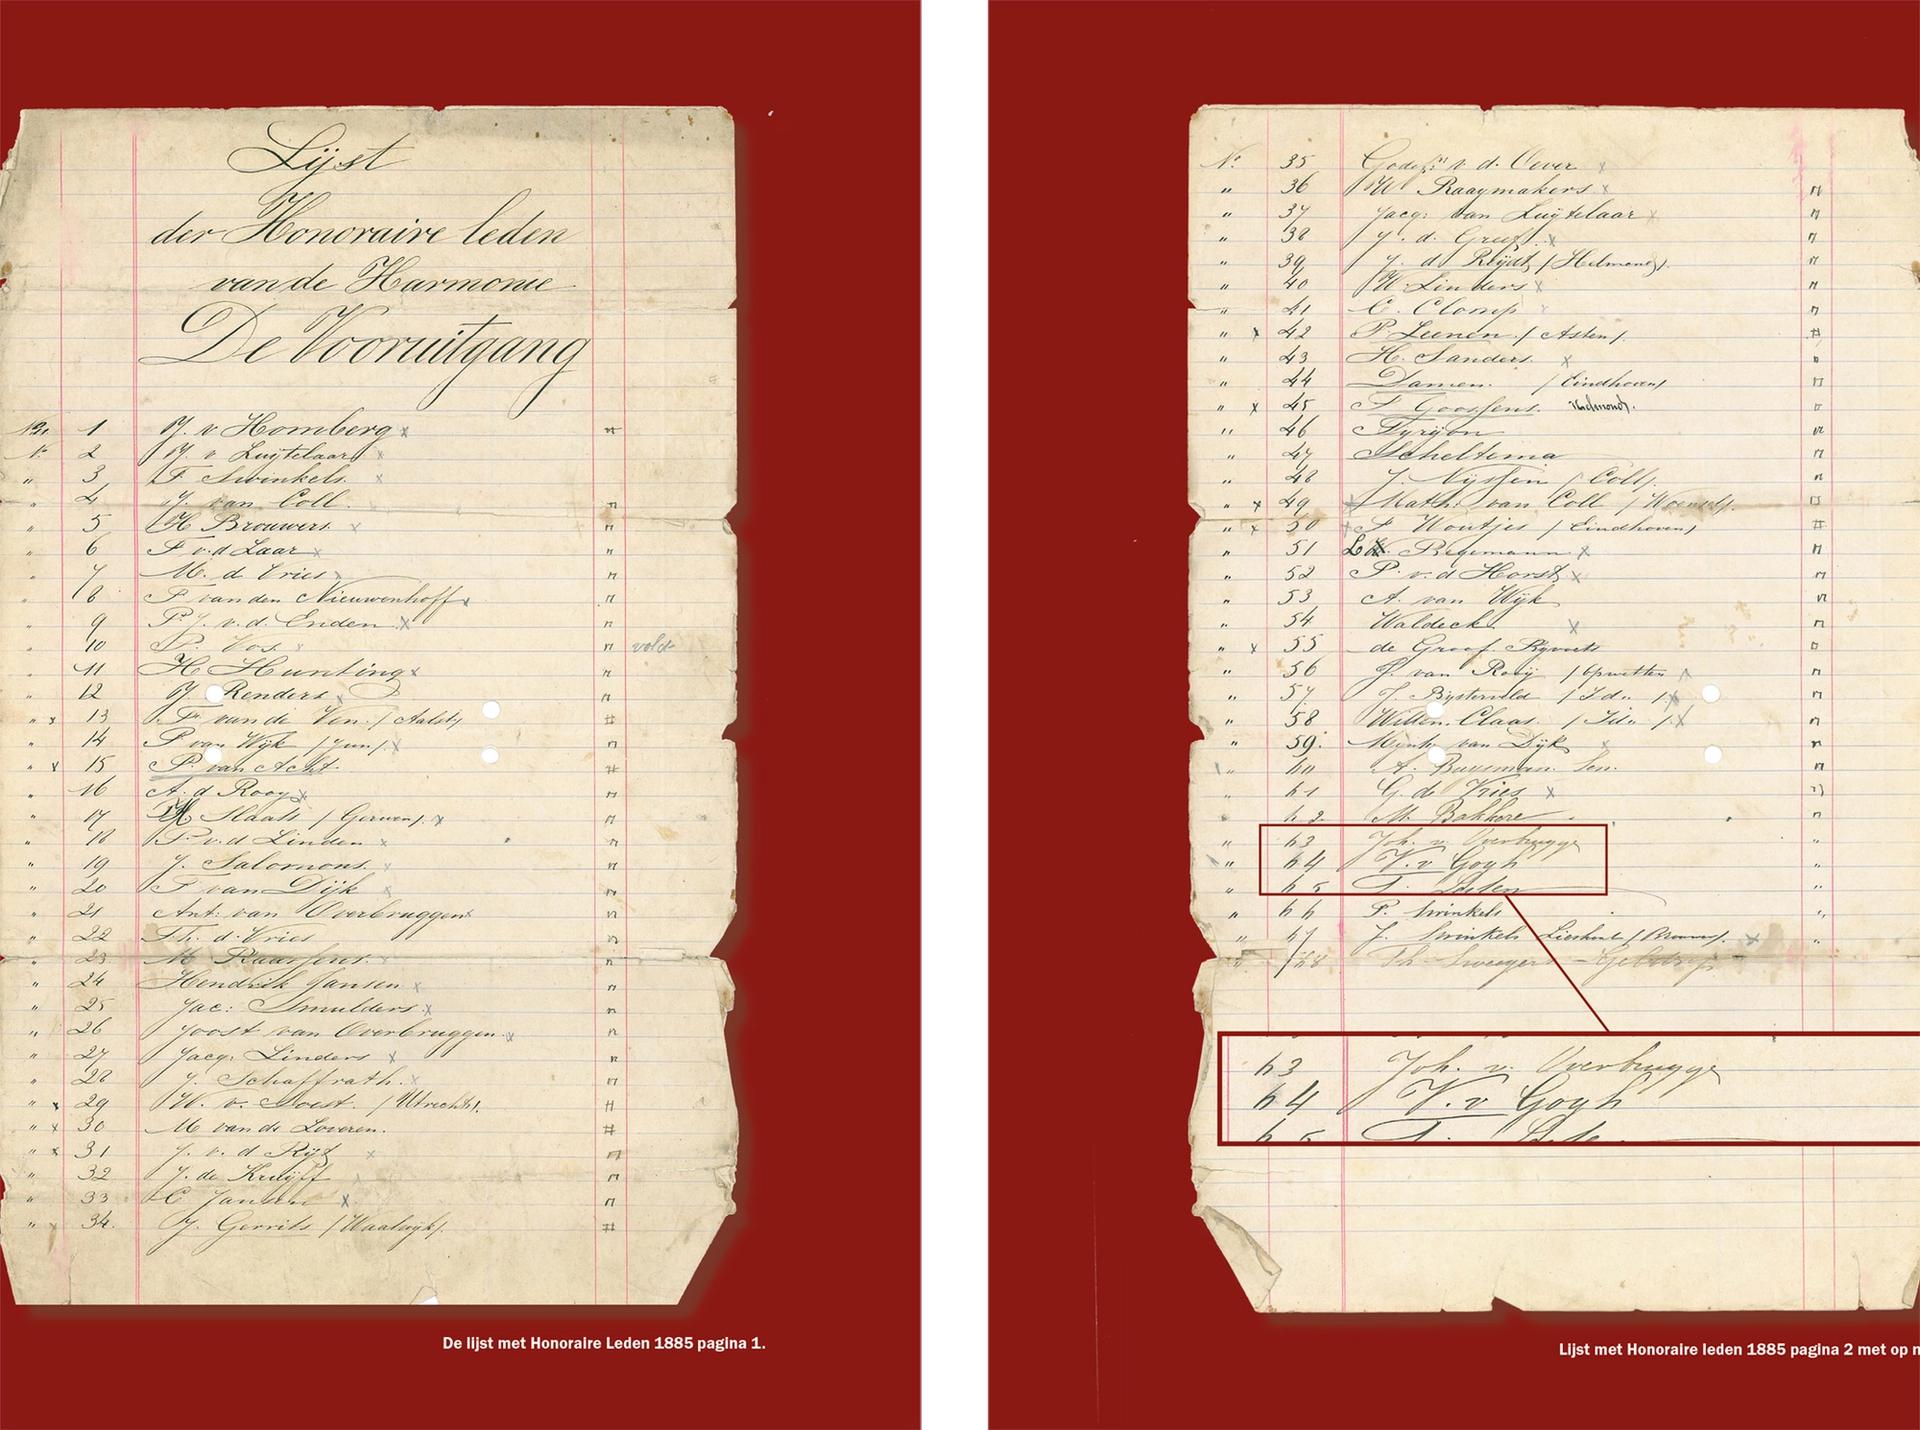 Lijst
der Honoraire leden
van de Harmonie
De Vooruitgang
No. 1 J. v Homberg x
N. 2 M. v Luijtelaar x
" 3 F Swinkels. x
" 4 J. van Coll. "
" 5 H Brouwers x "
" 6 F v.d Laar x "
" 7 M. d Vries x "
" 8 F van den Nieuwenhoff x "
" 9 P. J. v. d. Enden x "
" 10 P. Vos. x " vold
" 11 H Hunting x "
" 12 J. Renders x "
" x 13 F van de Ven. / Aalst / #
" 14 P van Wijk / Jun / x "
" x 15 P. van Acht #
" 16 A. d Rooy x "
" 17 Slaats / Gerwen /. x "
" 18 P v. d Linden x "
" 19 J. Salomons. x "
" 20 F van Dijk x "
" 21 Ant: van Overbruggen x "
" 22 Th. d. Vries "
" 23 M Raassens. x "
" 24 Hendrik Jansen x "
" 25 Jac: Smulders x "
" 26 Joost van Overbruggen. x "
" 27 Jacq: Linders x "
" 28 J. Schaffrath. x "
" x 29 W. v. Soest. / Utrecht /. #
" x 30 M van de Loveren. #
" x 31 J. v. d Rijt x "
" 32 J. de Kruijff "
" 33 C Jansen x "
" x 34. J. Gerrits / Waalwijk /. #
De lijst met Honoraire Leden 1885 pagina 1.
No. 35 v. d. Oever x
" 36 W Raaymakers x "
" 37 Jacq: van Luijtelaar x "
" 38 J. d. Greef. x "
" 39 J. d. Reijdt / Helmond /. "
" 40 W. Linders x "
" 41 C. Clomp x "
" x 42 P. Leenen / Asten /. #
" 43 H. Sanders. x "
" 44 Damen. / Eindhoven / "
" x 45 F Goossens. Helmond. "
" 46 "
" 47 Scheltema "
" 48 J. Nijssen / Coll /. "
" x 49 x Math. van Coll / Woensel /. "
" x 50 x Woutjes / Eindhoven / #
" 51 Begemann x "
" 52 P. v. d Horst x "
" 53 A. van Wijk "
" 54 Waldeck x "
" x 55 de Groof "
" 56 J. van Rooij / Opwetten "
" 57 J. Bijsterveld / Id. /. x "
" 58 Willem Claas. / Id. /. x "
" 59. van Dijk x "
" 60 A. Buysman. Sen. "
" 61 G. de Vries x "
" 62 M. Bakkere "
" 63 Joh. v. Overbrugge "
" 64 V. v Gogh "
" 65 "
" 66 P. Swinkels "
" 67 J. Swinkels Lieshout / Brouwer /. x "
" 68 Th Sweegers - Geldrop
63 Joh. v. Overbrugge
64 V. v Gogh
65
Lijst met Honoraire leden 1885 pagina 2 met op